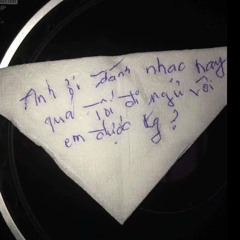 Anh ơi đánh nhạc hay
quá Tối đi ngủ với
em được kg?